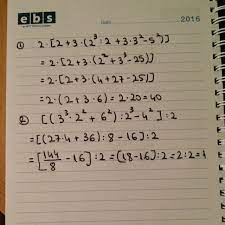 ebs
Date
2016
① 2·[2+3·(2³:2+3·3²-5²)]
=2·[2+3·(2²+3³-25)]
=2·[2+3·(4+27-25)]
=2·(2+3·6)=2·20=40
② [(3³·2²+6²):2³-4²]:2
=[(27·4+36):8-16]:2
=[144/8-16]:2=(18-16):2=2:2=1